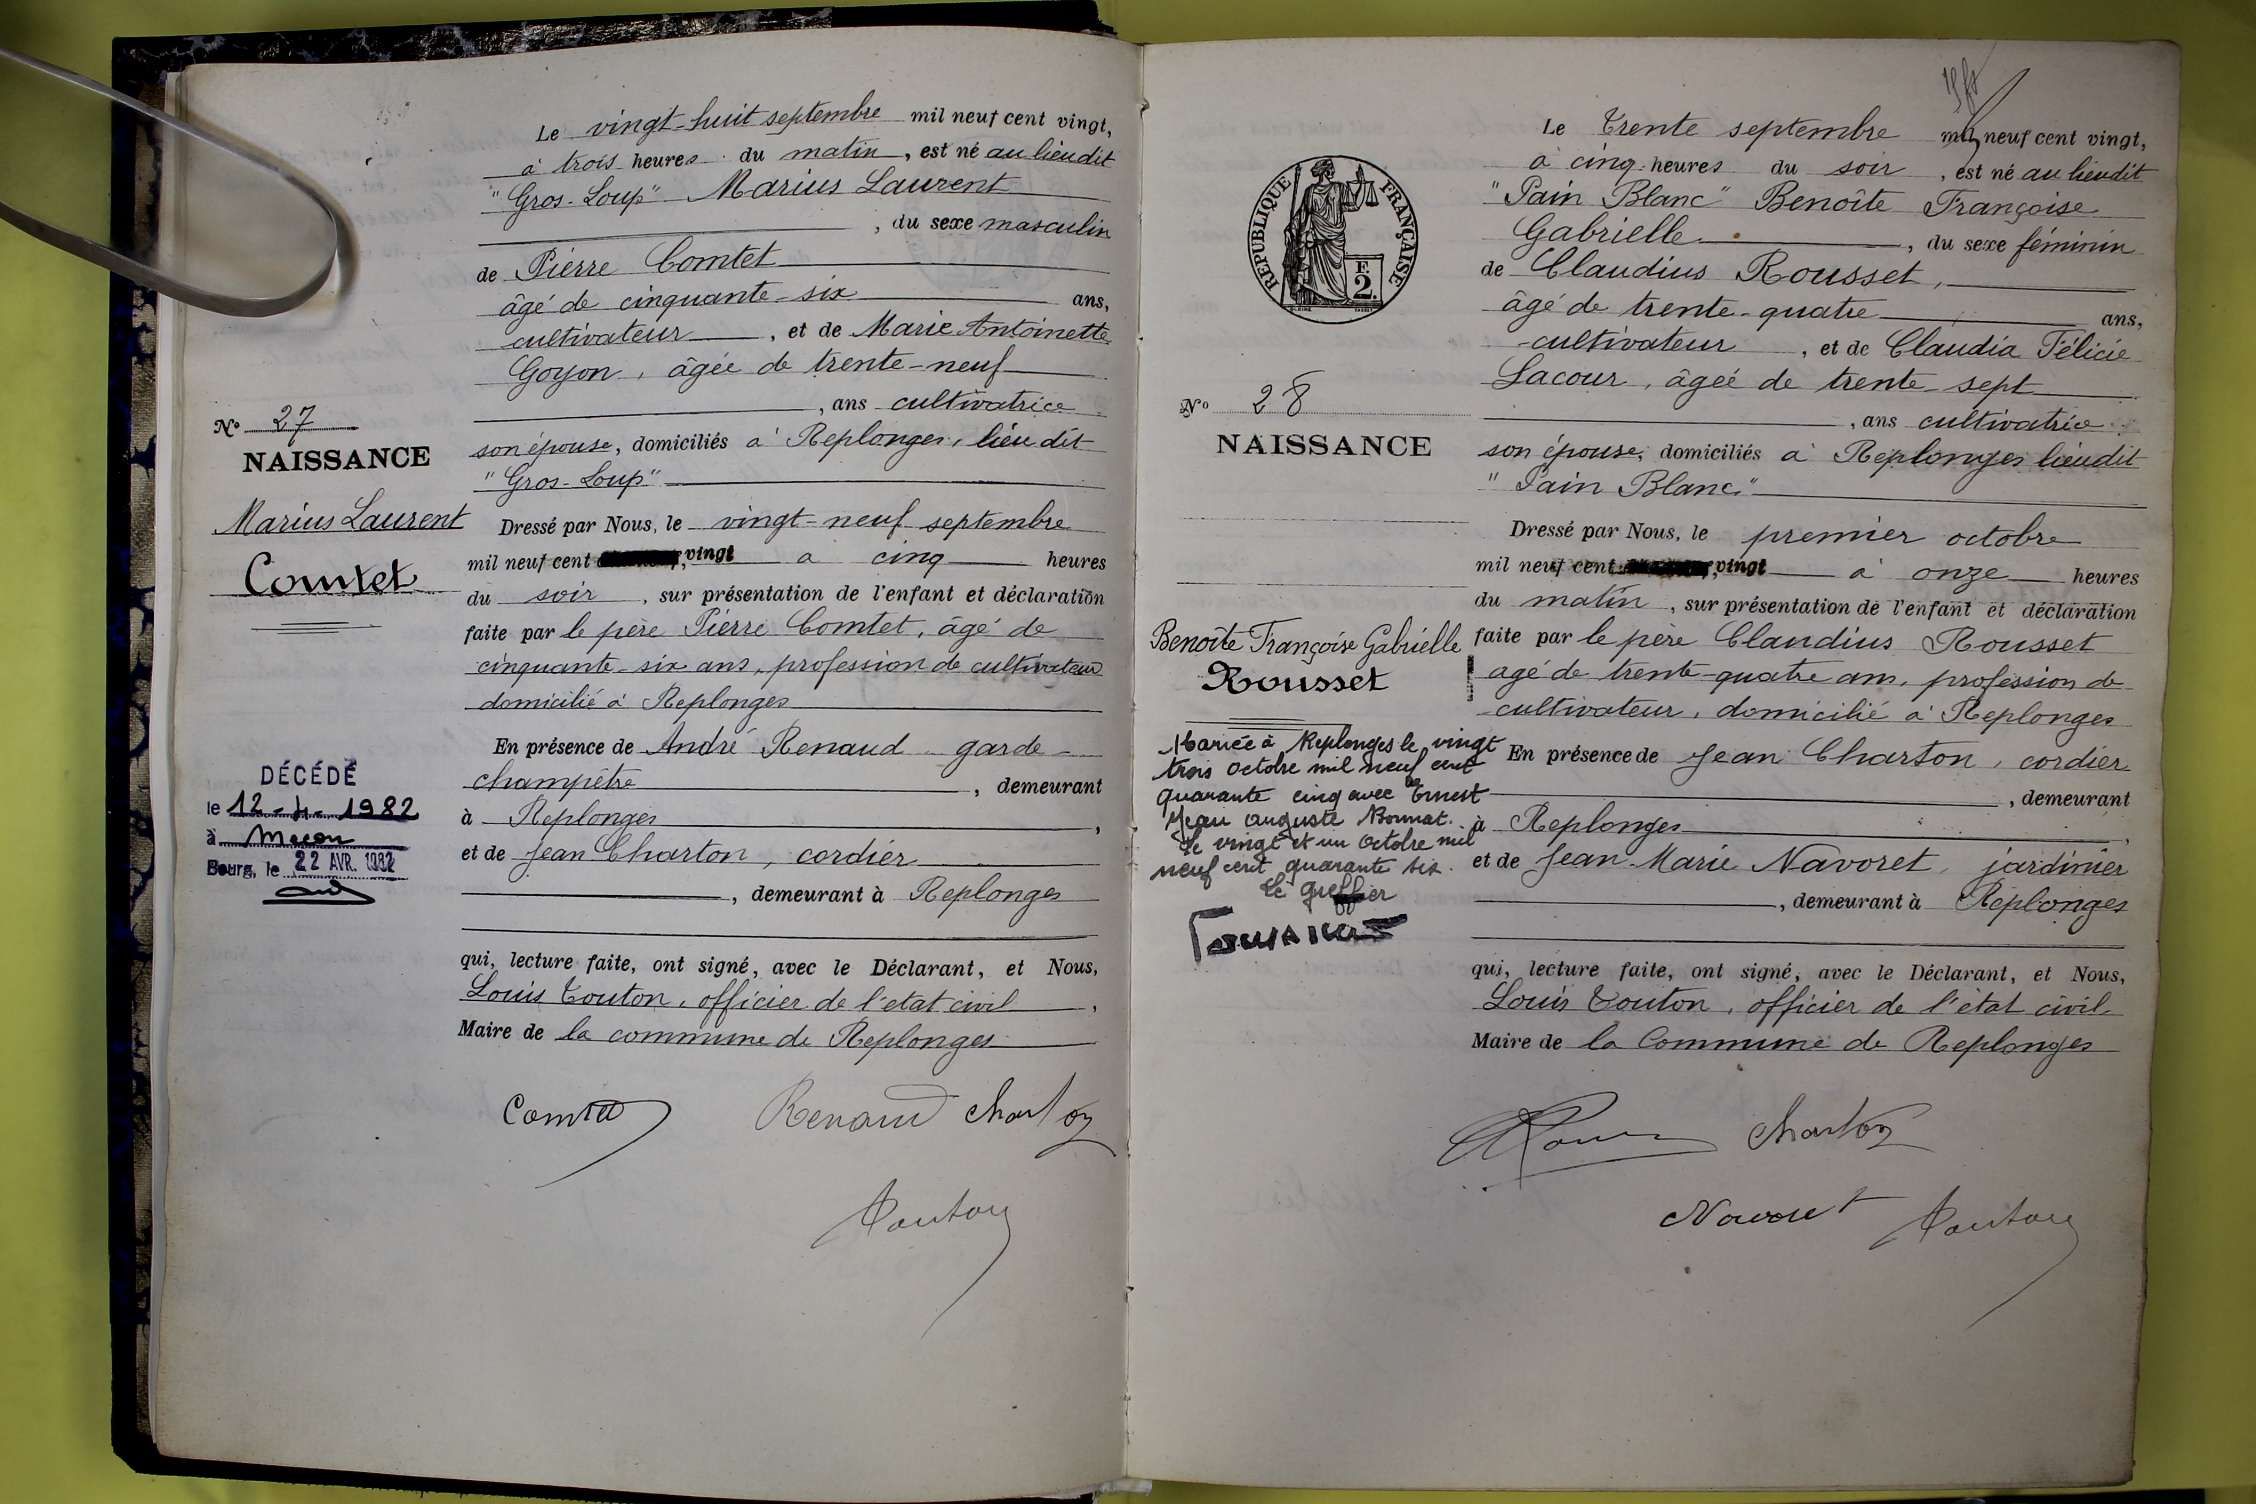 Le vingt-huit septembre mil neuf cent vingt,
à trois heures du matin, est né au lieu dit
"Gros-Loup" Marius Laurent
, du sexe masculin
de Pierre Comtet
âgé de cinquante-six ans,
cultivateur, et de Marie Antoinette
Goyon, âgée de trente-neuf
, ans cultivatrice
son épouse, domiciliés à Replonges, lieu dit
"Gros-Loup"
N° 27
NAISSANCE
Marius Laurent
Comtet
Dressé par Nous, le vingt-neuf septembre
mil neuf cent vingt à cinq heures
du soir, sur présentation de l'enfant et déclaration
faite par le père Pierre Comtet, âgé de
cinquante-six ans, profession de cultivateur
domicilié à Replonges
En présence de André Renaud garde-
champêtre, demeurant
à Replonges,
et de Jean Charton, cordier
, demeurant à Replonges
DÉCÉDÉ
le 12-4-1982
à Macon
Bourg, le 22 AVR. 1982
qui, lecture faite, ont signé, avec le Déclarant, et Nous,
Louis Touton, officier de l'etat civil,
Maire de la commune de Replonges
Comtet Renaud Charton
Touton
Le Trente septembre mil neuf cent vingt,
à cinq heures du soir, est né au lieudit
"Pain Blanc" Benoîte Françoise
Gabrielle, du sexe féminin
de Claudius Rousset,
âgé de trente-quatre ans,
cultivateur, et de Claudia Félicie
Lacour, âgée de trente-sept
, ans cultivatrice
son épouse, domiciliés à Replonges lieudit
"Pain Blanc"
REPUBLIQUE FRANÇAISE
F.
2.
N° 28
NAISSANCE
Benoîte Françoise Gabrielle
Rousset
Mariée à Replonges le vingt
trois octobre mil neuf cent
quarante cinq avec Ernest
Jean Auguste Bonnat.
Le vingt et un octobre mil
neuf cent quarante six.
Le greffier
Dressé par Nous, le premier octobre
mil neuf cent vingt à onze heures
du matin, sur présentation de l'enfant et déclaration
faite par le père Claudius Rousset
agé de trente-quatre ans, profession de
cultivateur, domicilié à Replonges
En présence de Jean Charton, cordier
, demeurant
à Replonges,
et de Jean-Marie Navoret, jardinier
, demeurant à Replonges
qui, lecture faite, ont signé, avec le Déclarant, et Nous,
Louis Touton, officier de l'état civil
Maire de la Commune de Replonges
Charton
Navoret Touton